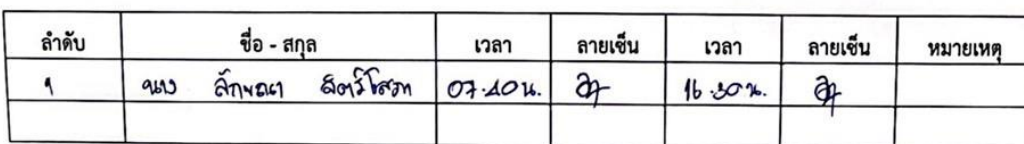 ลำดับ ชื่อ - สกุล เวลา ลายเซ็น เวลา ลายเซ็น หมายเหตุ
๑ นาง ลักษณา 07.40น. 16.30น.